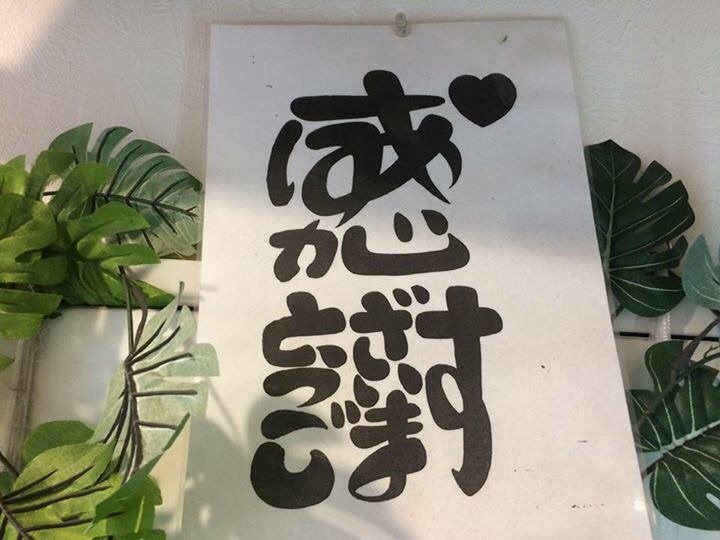 ありが
とうございます